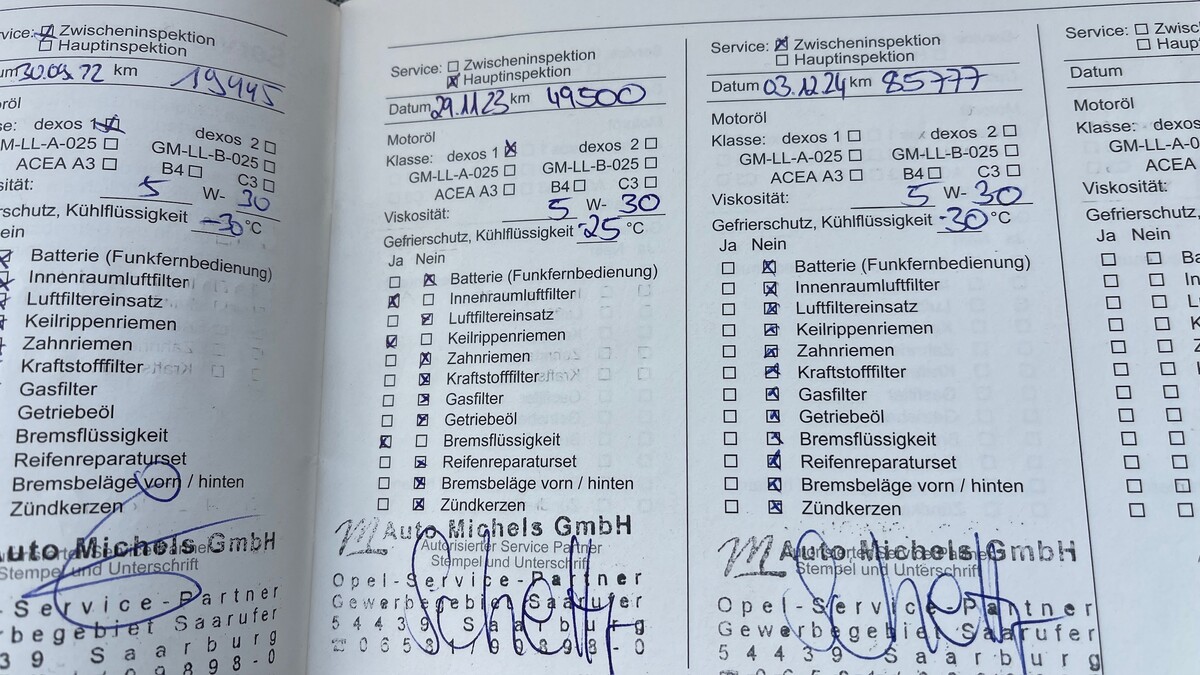 vice: Zwischeninspektion
Hauptinspektion
um 30.09.22 km 19445
oröl
se: dexos 1 dexos 2
M-LL-A-025 GM-LL-B-025
ACEA A3 B4 C3
sität: 5 W- 30
erschutz, Kühlflüssigkeit -30 °C
ein
Batterie (Funkfernbedienung)
Innenraumluftfilter
Luftfiltereinsatz
Keilrippenriemen
Zahnriemen
Kraftstofffilter
Gasfilter
Getriebeöl
Bremsflüssigkeit
Reifenreparaturset
Bremsbeläge vorn / hinten
Zündkerzen
uto Michels GmbH
Stempel und Unterschrift
-Service-Partner
rbegebiet Saarufer
39 Saarburg
Service: Zwischeninspektion
Hauptinspektion
Datum 29.11.23 km 49500
Motoröl
Klasse: dexos 1 dexos 2
GM-LL-A-025 GM-LL-B-025
ACEA A3 B4 C3
Viskosität: 5 W- 30
Gefrierschutz, Kühlflüssigkeit -25 °C
Ja Nein
Batterie (Funkfernbedienung)
Innenraumluftfilter
Luftfiltereinsatz
Keilrippenriemen
Zahnriemen
Kraftstofffilter
Gasfilter
Getriebeöl
Bremsflüssigkeit
Reifenreparaturset
Bremsbeläge vorn / hinten
Zündkerzen
Auto Michels GmbH
Autorisierter Service Partner
Stempel und Unterschrift
Opel-Service-Partner
Gewerbegebiet Saarufer
54439 Saarburg
Service: Zwischeninspektion
Hauptinspektion
Datum 03.12.24 km 85777
Motoröl
Klasse: dexos 1 dexos 2
GM-LL-A-025 GM-LL-B-025
ACEA A3 B4 C3
Viskosität: 5 W- 30
Gefrierschutz, Kühlflüssigkeit -30 °C
Ja Nein
Batterie (Funkfernbedienung)
Innenraumluftfilter
Luftfiltereinsatz
Keilrippenriemen
Zahnriemen
Kraftstofffilter
Gasfilter
Getriebeöl
Bremsflüssigkeit
Reifenreparaturset
Bremsbeläge vorn / hinten
Zündkerzen
Auto Michels GmbH
Autorisierter Service Partner
Stempel und Unterschrift
Opel-Service-Partner
Gewerbegebiet Saarufer
54439 Saarburg
Service: Zwische
Haup
Datum
Motoröl
Klasse: dexos
GM-LL-A-0
ACEA
Viskosität:
Gefriersch
Ja Nein
Ba
In
L
K
Z